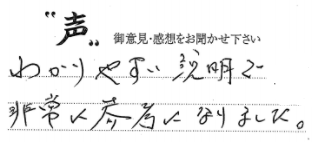 "声" 御意見・感想をお聞かせ下さい
わかりやすい説明で
非常に参考になりました。